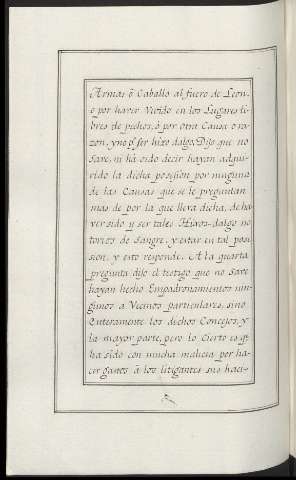 Armas ô Caballo al fuero de Leon,
o por haver Vivido en los Lugares li-
bres de pechos, ô por otra Causa o ra-
zon, y no pr. ser hixo dalgo, Dijo que no
save, ni ha oido decir hayan adqui-
rido la dicha posesion por ninguna
de las Causas que se le preguntan
mas de por la que lleva dicha, de ha
ver sido y ser tales Hijos-dalgo no
torios de sangre, y estar en tal pose
sion, y esto responde. A la quarta
pregunta dijo el testigo que no save
hayan hecho Empadronamientos nin-
gunos a Vecinos particulares, sino
Enteramente los dichos Concejos, y
la mayor parte, pero lo Cierto es qe
ha sido con mucha malicia por ha-
cer ganos à los litigantes sus haci-